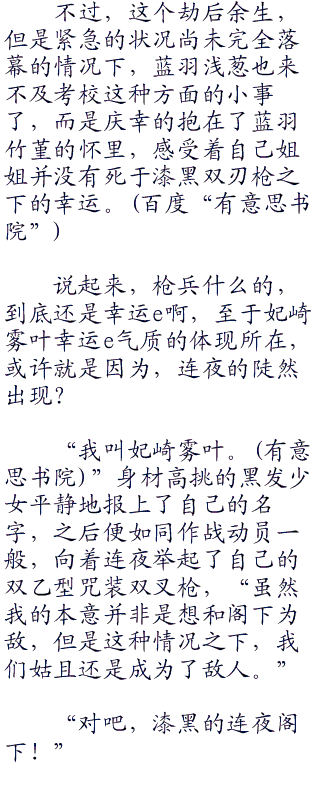 不过，这个劫后余生，
但是紧急的状况尚未完全落
幕的情况下，蓝羽浅葱也来
不及考校这种方面的小事
了，而是庆幸的抱在了蓝羽
竹堇的怀里，感受着自己姐
姐并没有死于漆黑双刃枪之
下的幸运。(百度“有意思书
院”)
说起来，枪兵什么的，
到底还是幸运e啊，至于妃崎
雾叶幸运e气质的体现所在，
或许就是因为，连夜的陡然
出现？
“我叫妃崎雾叶。(有意
思书院)”身材高挑的黑发少
女平静地报上了自己的名
字，之后便如同作战动员一
般，向着连夜举起了自己的
双乙型咒装双叉枪，“虽然
我的本意并非是想和阁下为
敌，但是这种情况之下，我
们姑且还是成为了敌人。”
“对吧，漆黑的连夜阁
下！”